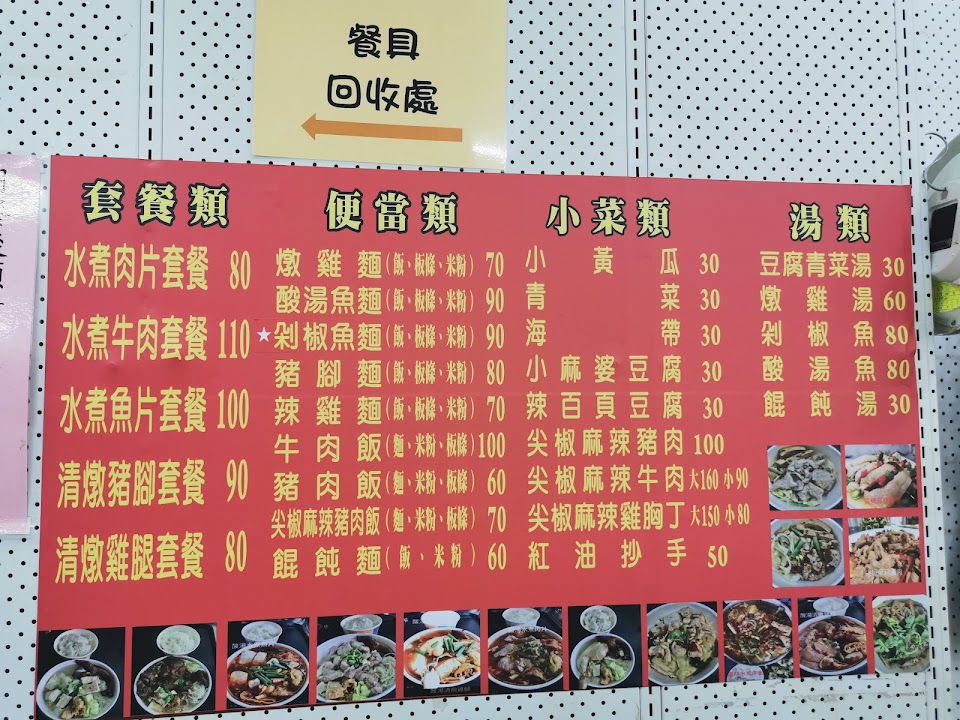 餐具
回收處
套餐類
水煮肉片套餐 80
水煮牛肉套餐 110
水煮魚片套餐 100
清燉豬腳套餐 90
清燉雞腿套餐 80
便當類
燉雞麵(飯、板條、米粉) 70
酸湯魚麵(飯、板條、米粉) 90
★剁椒魚麵(飯、板條、米粉) 90
豬腳麵(飯、板條、米粉) 80
辣雞麵(飯、板條、米粉) 70
牛肉飯(麵、米粉、板條) 100
豬肉飯(麵、米粉、板條) 60
尖椒麻辣豬肉飯(麵、米粉、板條) 70
餛飩麵(飯、米粉) 60
小菜類
小黃瓜 30
青菜 30
海帶 30
小麻婆豆腐 30
辣百頁豆腐 30
尖椒麻辣豬肉 100
尖椒麻辣牛肉 大160 小90
尖椒麻辣雞胸丁 大150 小80
紅油抄手 50
湯類
豆腐青菜湯 30
燉雞湯 60
剁椒魚 80
酸湯魚 80
餛飩湯 30